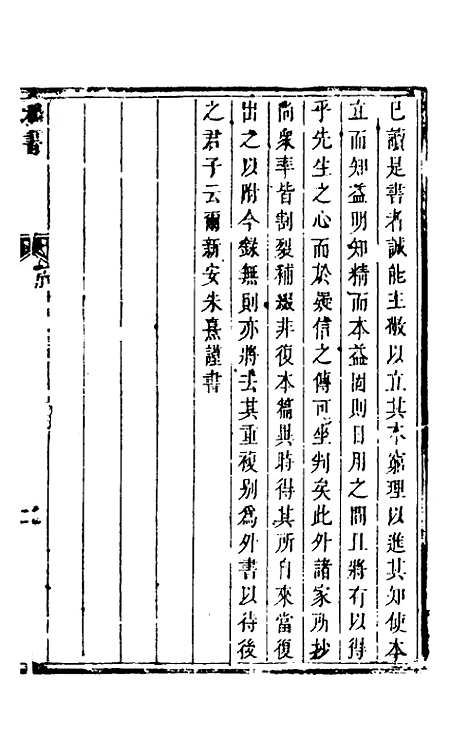 已讀是書者誠能主敬以立其本窮理以進其知使本
立而知益明知精而本益固則日用之間且將有以得
乎先生之心而於疑信之傳可坐判矣此外諸家所抄
尚衆率皆割裂補綴非復本篇異時得其所自來當復
出之以附今錄無則亦將去其重複别爲外書以待後
之君子云爾新安朱熹謹書